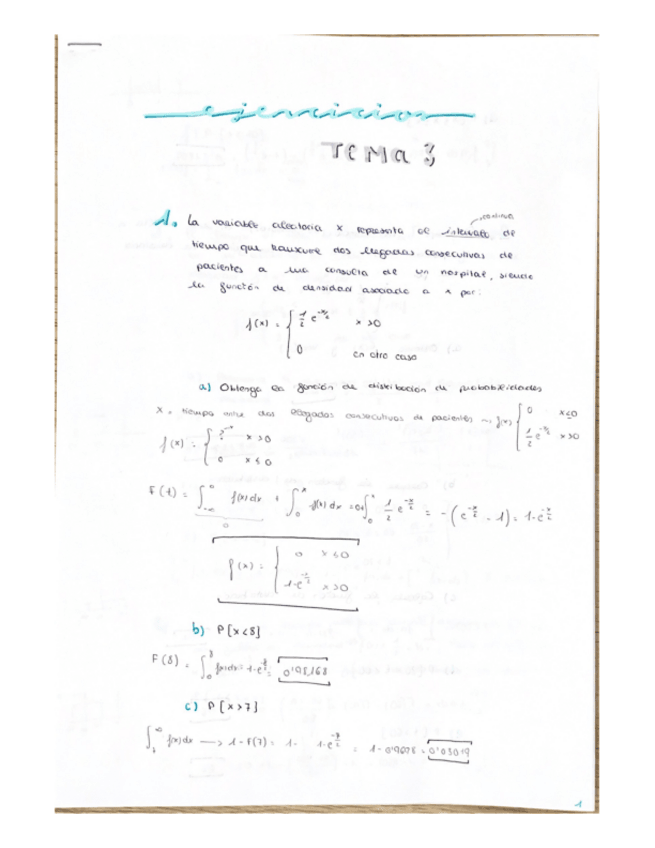 ejercicios
TEMA 3
continua
1. La variable aleatoria x representa el intervalo de
tiempo que transcurre dos llegadas consecutivas de
pacientes a una consulta de un hospital, siendo
la función de densidad asociada a x por:
f(x) = { 1/2 e^-x/2 x>0
0 en otro caso
a) Obtenga la función de distribución de probabilidades
x, tiempo entre dos llegadas consecutivas de pacientes → f(x) { 0 x≤0
1/2 e^-x/2 x>0
f(x) = { x>0
0 x≤0
F(t) = ∫_-∞^0 f(x)dx + ∫_0^x f(x)dx = 0+∫_0^x 1/2 e^-x/2 = -(e^-x/2 - 1) = 1-e^-x/2
0
f(x) = { 0 x≤0
1-e^-x/2 x>0
b) P[x<8]
F(8) = ∫_0^8 f(x)dx = 1-e^-8/2 = 0'98168
c) P[x>7]
∫_7^∞ f(x)dx → 1-F(7) = 1- 1-e^-7/2 = 1-0'9698 = 0'03019
1